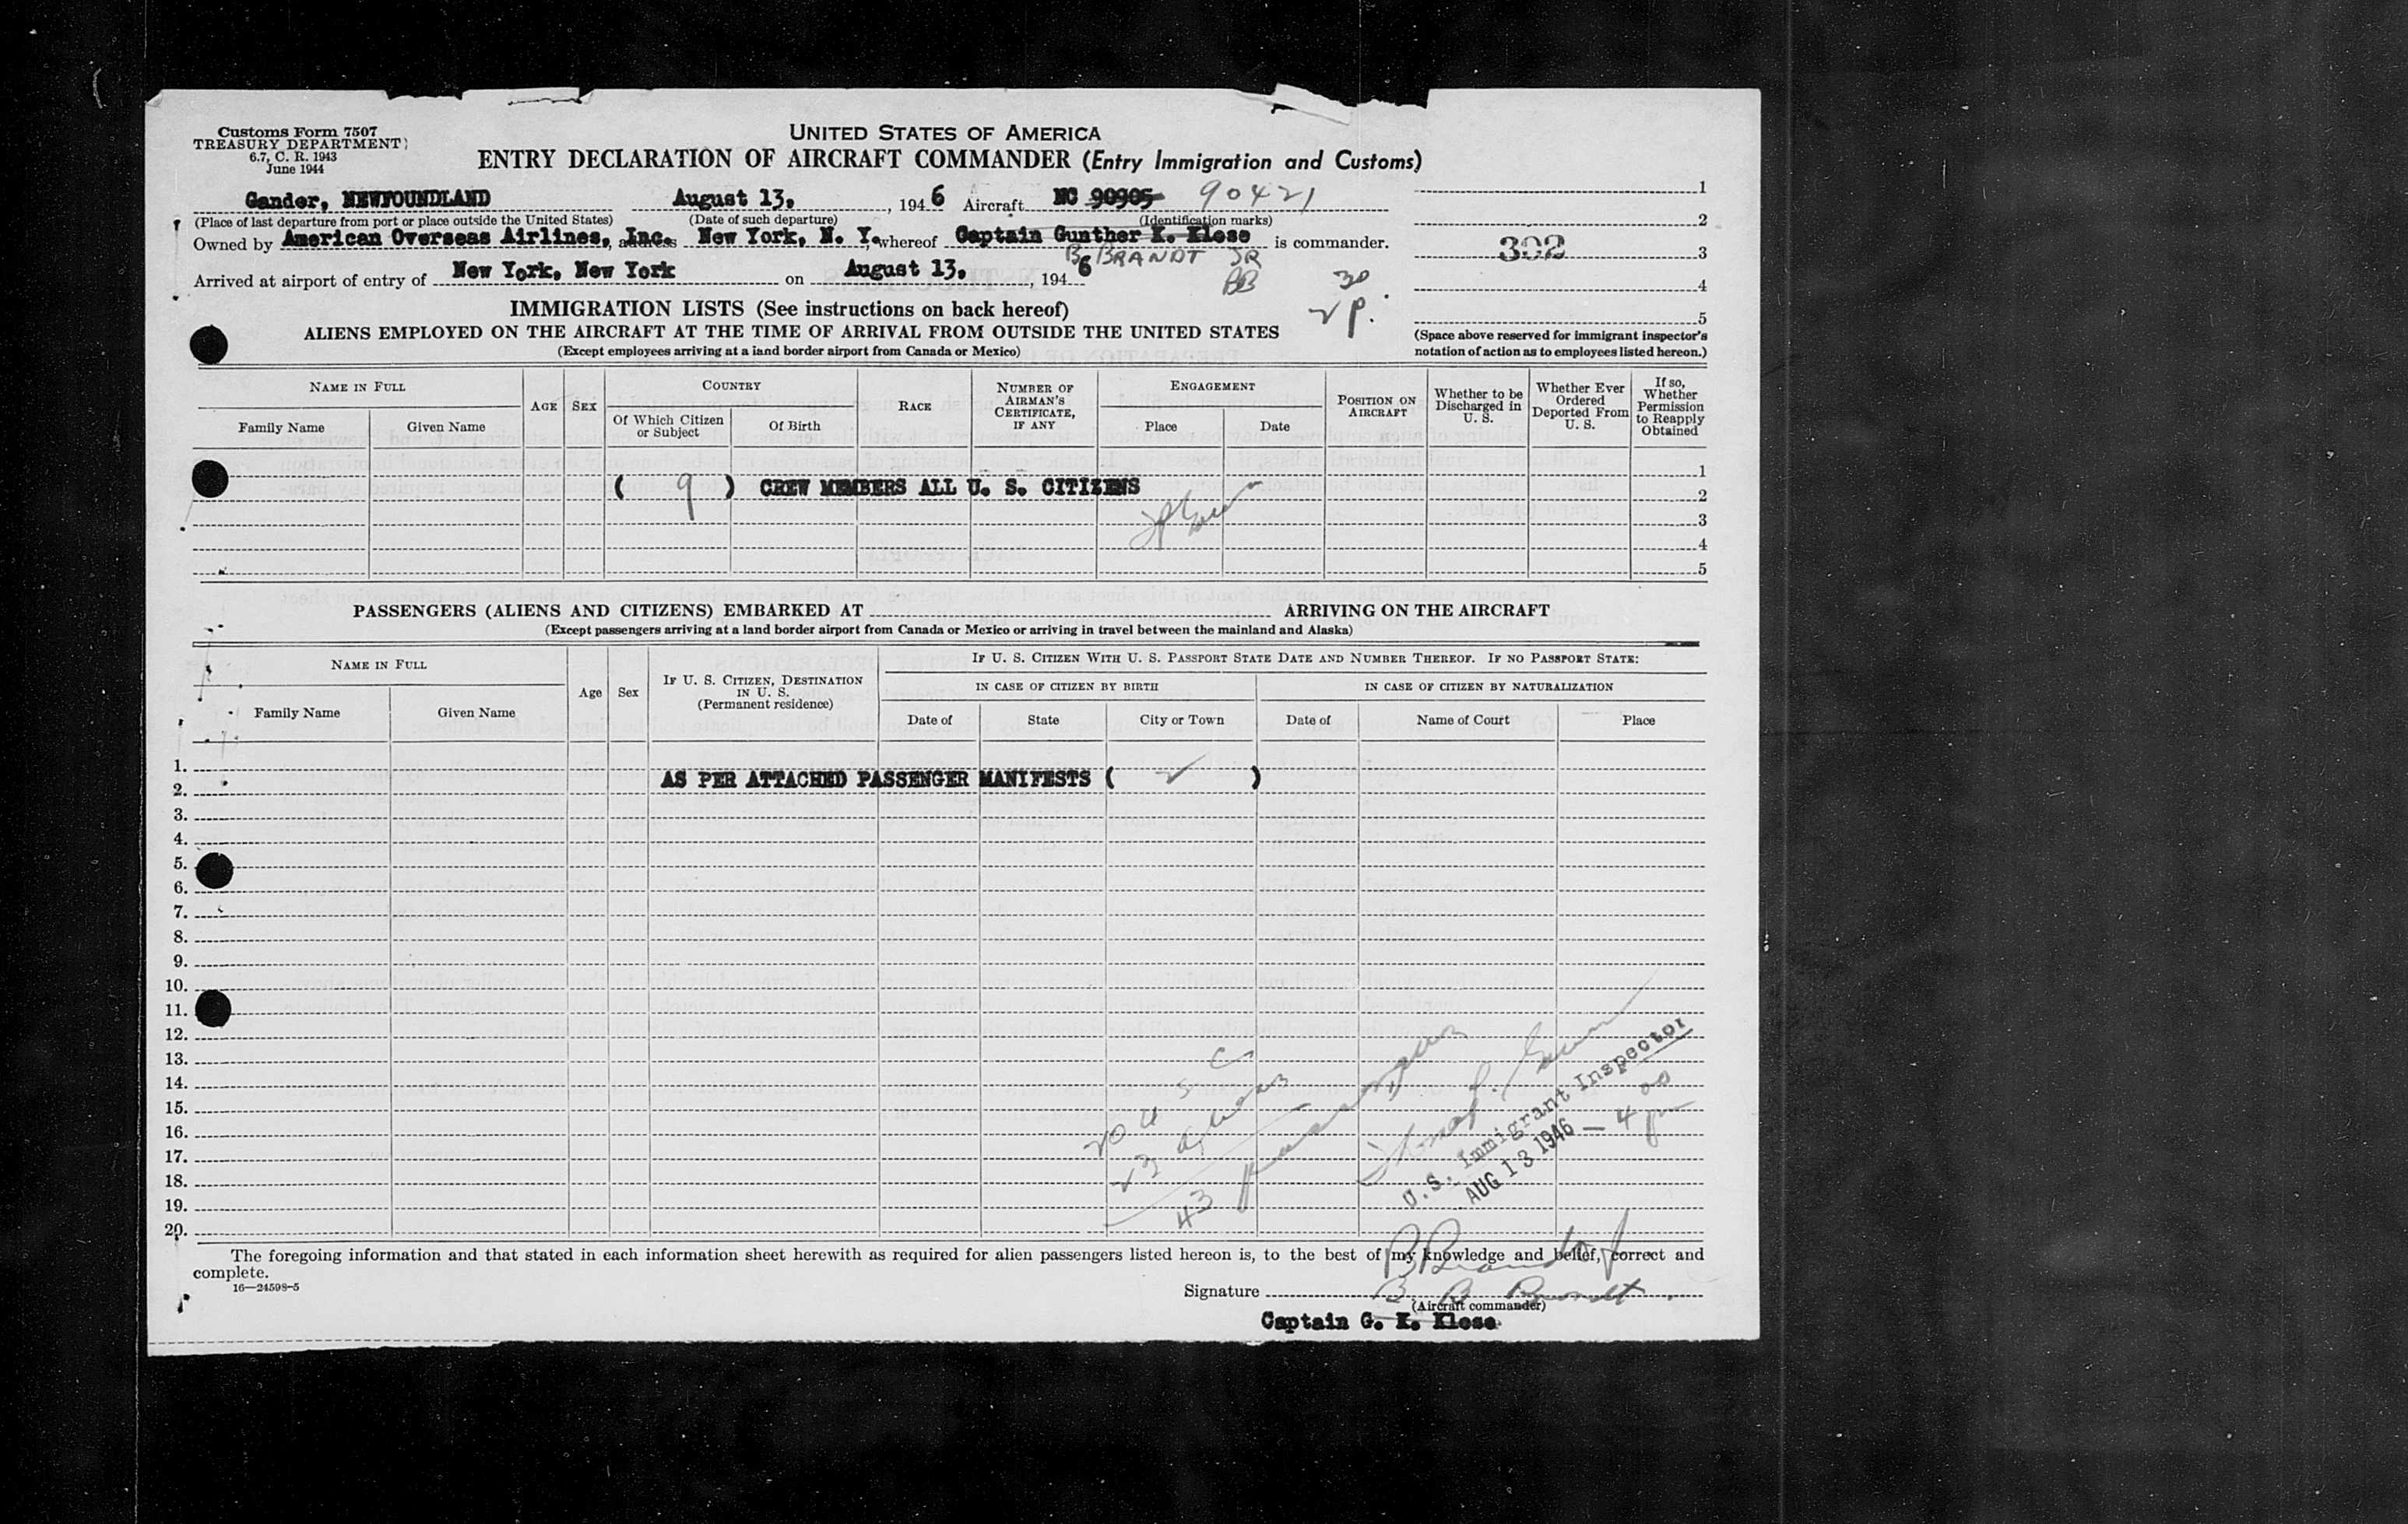 Customs Form 7507
TREASURY DEPARTMENT
6.7, C. R. 1943
June 1944
UNITED STATES OF AMERICA
ENTRY DECLARATION OF AIRCRAFT COMMANDER (Entry Immigration and Customs)
Gander, NEWFOUNDLAND August 13, , 1946 Aircraft NC 90905 90421
(Place of last departure from port or place outside the United States) (Date of such departure) (Identification marks)
Owned by American Overseas Airlines, Inc. New York, N. Y. whereof Captain Gunther K. Klose is commander.
B BRANDT JR
BB
Arrived at airport of entry of New York, New York on August 13, , 1946
30
2 p.
1
2
302 3
4
5
(Space above reserved for immigrant inspector's notation of action as to employees listed hereon.)
IMMIGRATION LISTS (See instructions on back hereof)
ALIENS EMPLOYED ON THE AIRCRAFT AT THE TIME OF ARRIVAL FROM OUTSIDE THE UNITED STATES
(Except employees arriving at a land border airport from Canada or Mexico)
NAME IN FULL
Family Name Given Name
AGE SEX
COUNTRY
Of Which Citizen or Subject Of Birth
RACE
NUMBER OF AIRMAN'S CERTIFICATE, IF ANY
ENGAGEMENT
Place Date
POSITION ON AIRCRAFT
Whether to be Discharged in U. S.
Whether Ever Ordered Deported From U. S.
If so, Whether Permission to Reapply Obtained
1
( 9 ) CREW MEMBERS ALL U. S. CITIZENS 2
3
4
5
PASSENGERS (ALIENS AND CITIZENS) EMBARKED AT ARRIVING ON THE AIRCRAFT
(Except passengers arriving at a land border airport from Canada or Mexico or arriving in travel between the mainland and Alaska)
NAME IN FULL
Family Name Given Name
Age Sex
IF U. S. CITIZEN, DESTINATION IN U. S.
(Permanent residence)
IF U. S. CITIZEN WITH U. S. PASSPORT STATE DATE AND NUMBER THEREOF. IF NO PASSPORT STATE:
IN CASE OF CITIZEN BY BIRTH IN CASE OF CITIZEN BY NATURALIZATION
Date of State City or Town Date of Name of Court Place
1.
AS PER ATTACHED PASSENGER MANIFESTS ( ✓ )
2.
3.
4.
5.
6.
7.
8.
9.
10.
11.
12.
13.
14.
15.
16.
17.
18.
19.
20.
20 U S C
23 aliens
43 passengers
U.S. Immigrant Inspector
AUG 13 1946 — 4 00 pm
The foregoing information and that stated in each information sheet herewith as required for alien passengers listed hereon is, to the best of my knowledge and belief, correct and
complete.
16—24598-5
B Brandt Jr
Signature B B Brandt
(Aircraft commander)
Captain G. K. Klose